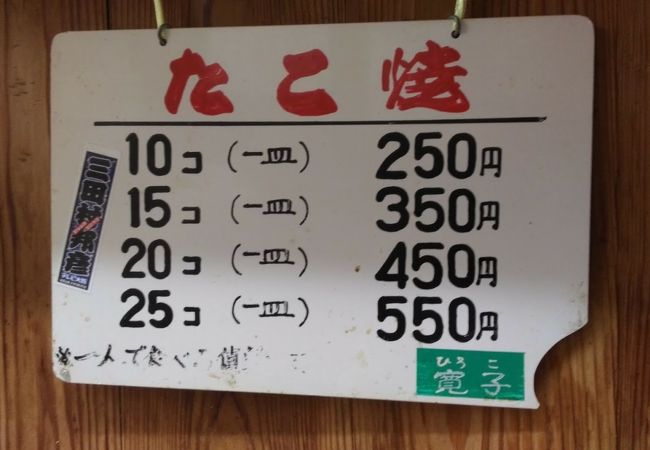 たこ焼
10コ (一皿) 250円
15コ (一皿) 350円
20コ (一皿) 450円
25コ (一皿) 550円
※一人で
ひろこ
寛子
三田村邦彦